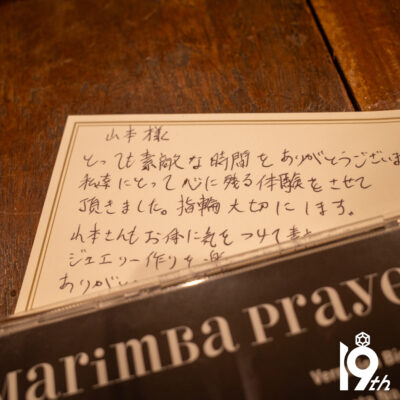 山本様
とっても素敵な時間をありがとうございま
私達にとって心に残る体験をさせて
頂きました。指輪大切にします。
山本さんもお体に気をつけて
ジュエリー作りを
ありがと
Marimba Praye
Ve
19th